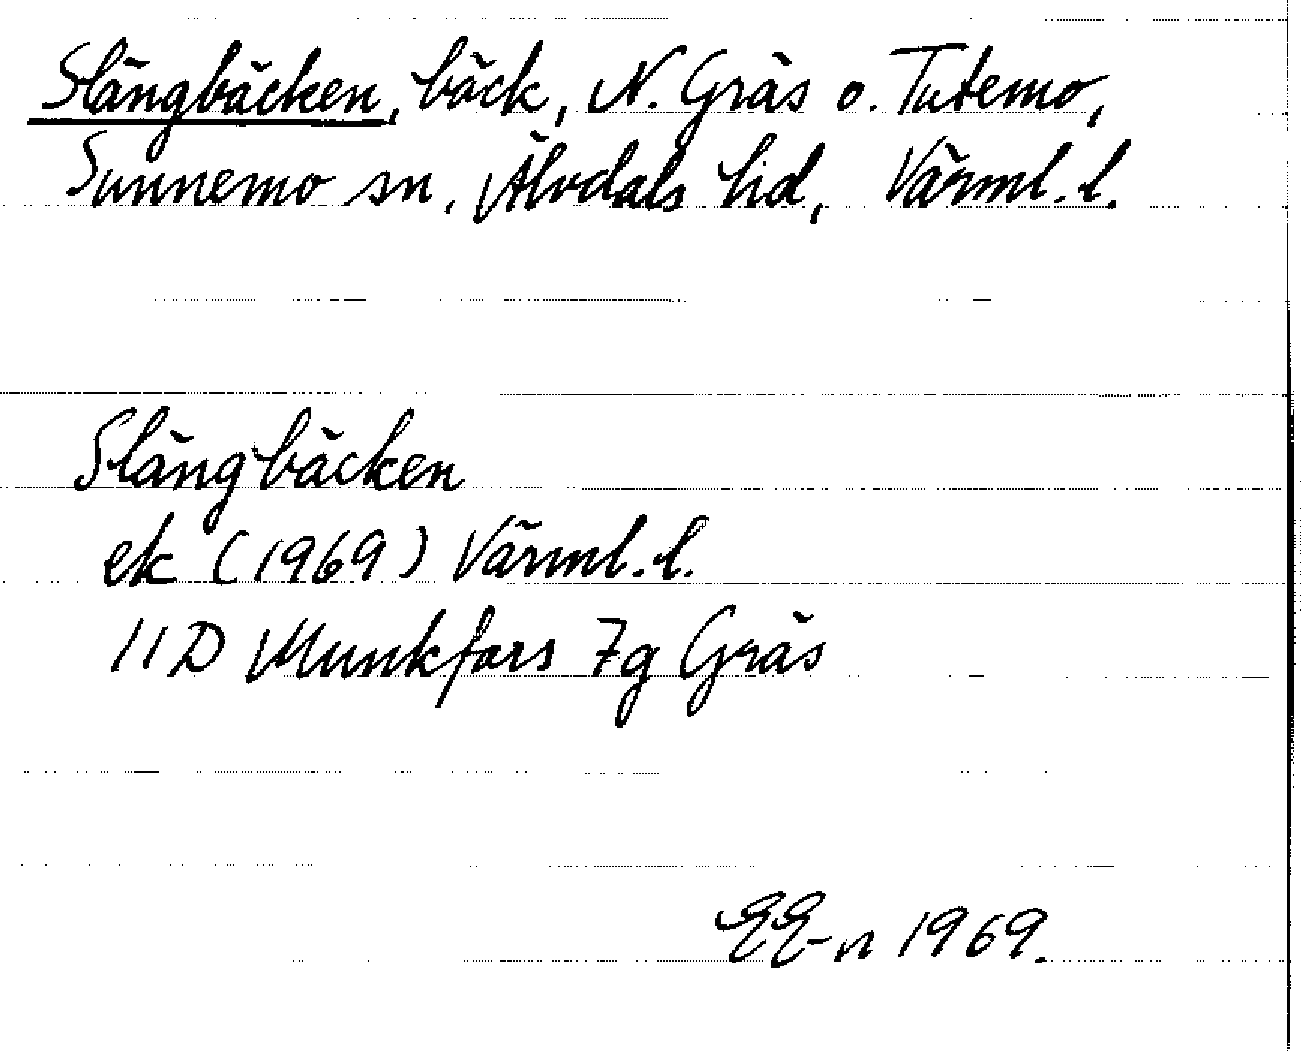 Slängbäcken, bäck, N. Gräs o. Tutemo,
Sunnemo sn, Älvdals hd, Värml. l.
Slängbäcken
ek (1969) Värml. l.
11D Munkfors 7g Gräs
EE-n 1969.